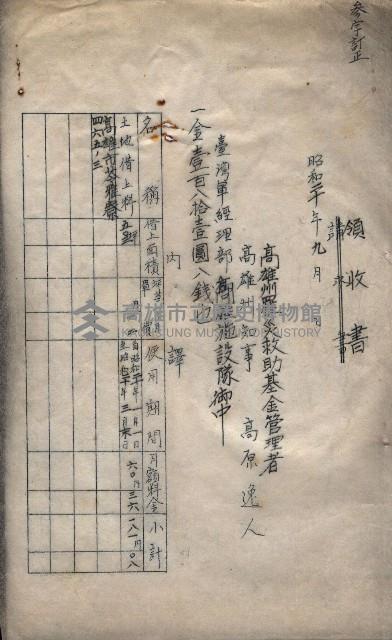 参字訂正
領收書
請求書
昭和二十年九月 日
高雄州罹災救助基金管理者
高雄州知事 高原逸人
臺灣軍經理部高雄施設隊御中
一金壹百八拾壹圓八錢也
內譯
名稱 借上面積 使用期間 月額料金 小計
土地借上料
自昭和二十年一月一日
至昭和二十年三月末日
六〇円三六
一八一円〇八
高雄市苓雅寮
四六五ノ三
高雄市立歷史博物館
KAOHSIUNG MUSEUM OF HISTORY